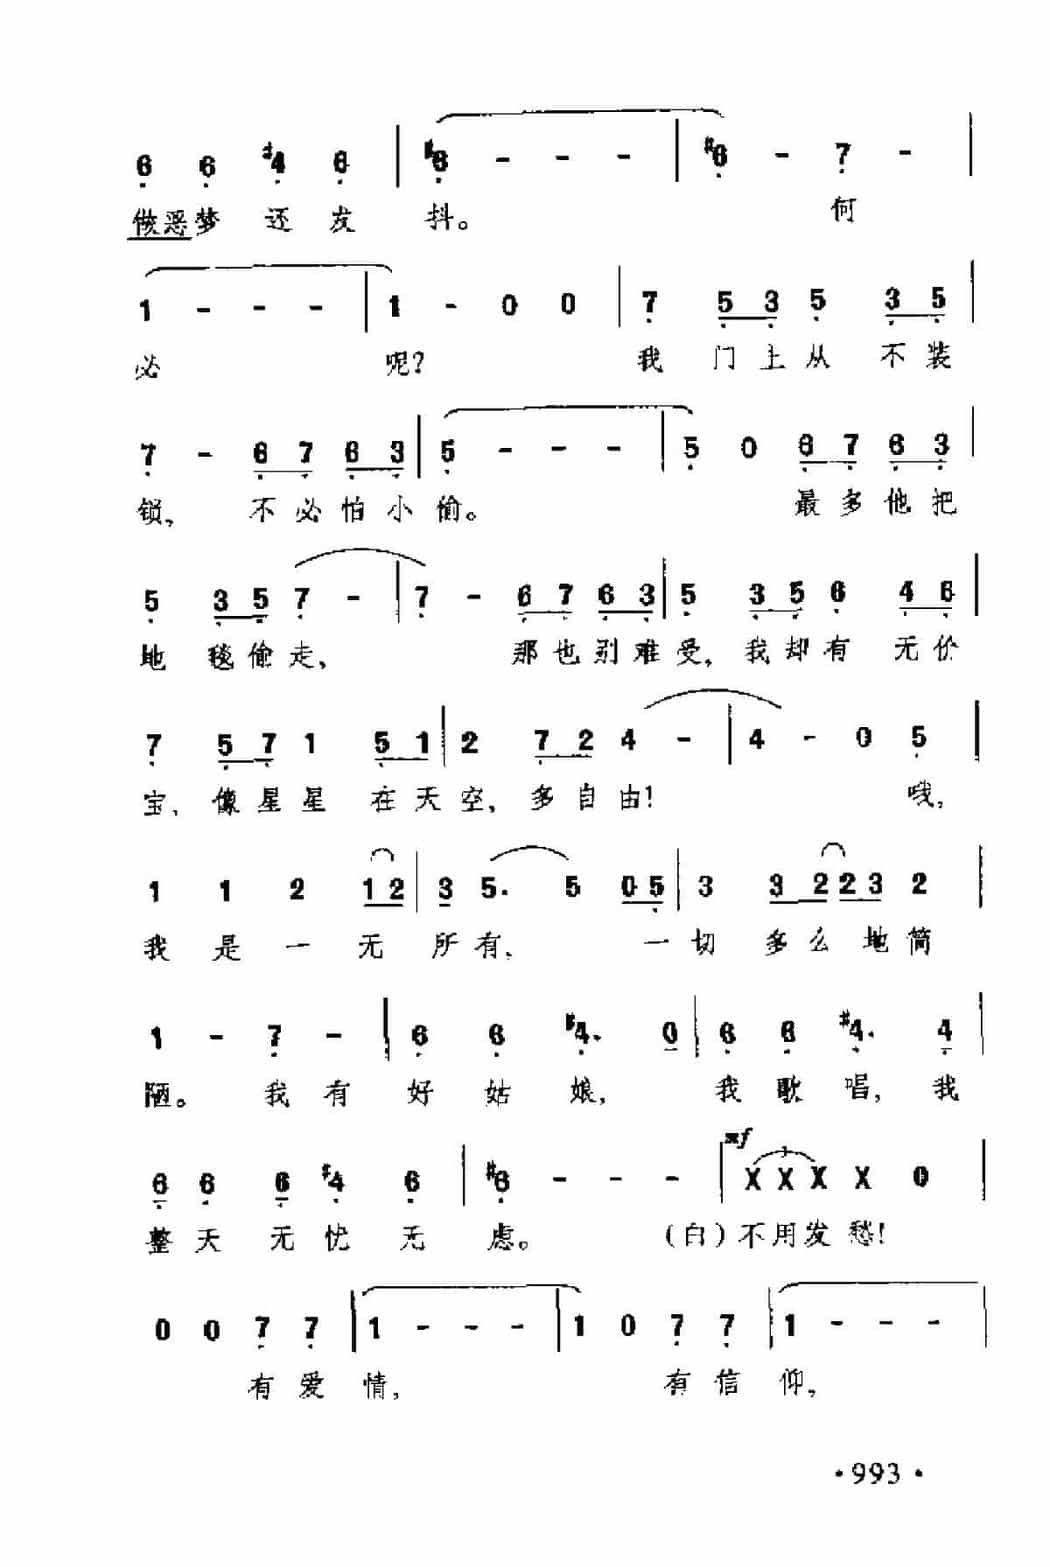 6 6 #4 6 | #6 - - - | #6 - 7 - |
做恶梦 还 发 抖。 何
1 - - - | 1 - 0 0 | 7 5 3 5 3 5 |
必 呢? 我 门 上 从 不 装
7 - 6 7 6 3 | 5 - - - | 5 0 6 7 6 3 |
锁, 不 必 怕 小 偷。 最 多 他 把
5 3 5 7 - | 7 - 6 7 6 3 | 5 3 5 6 4 6 |
地 毯 偷 走, 那 也 别 难 受, 我 却 有 无 价
7 5 7 1 5 1 | 2 7 2 4 - | 4 - 0 5 |
宝, 像 星 星 在 天 空, 多 自 由! 哦,
1 1 2 1 2 | 3 5. 5 0 5 | 3 3 2 2 3 2 |
我 是 一 无 所 有, 一 切 多 么 地 简
1 - 7 - | 6 6 #4. 0 | 6 6 #4. 4 |
陋。 我 有 好 姑 娘, 我 歌 唱, 我
mf
3
6 6 6 #4 6 | #6 - - - | X X X X 0 |
整 天 无 忧 无 虑。 (白) 不 用 发 愁!
0 0 7 7 | 1 - - - | 1 0 7 7 | 1 - - - |
有 爱 情, 有 信 仰,
·993·